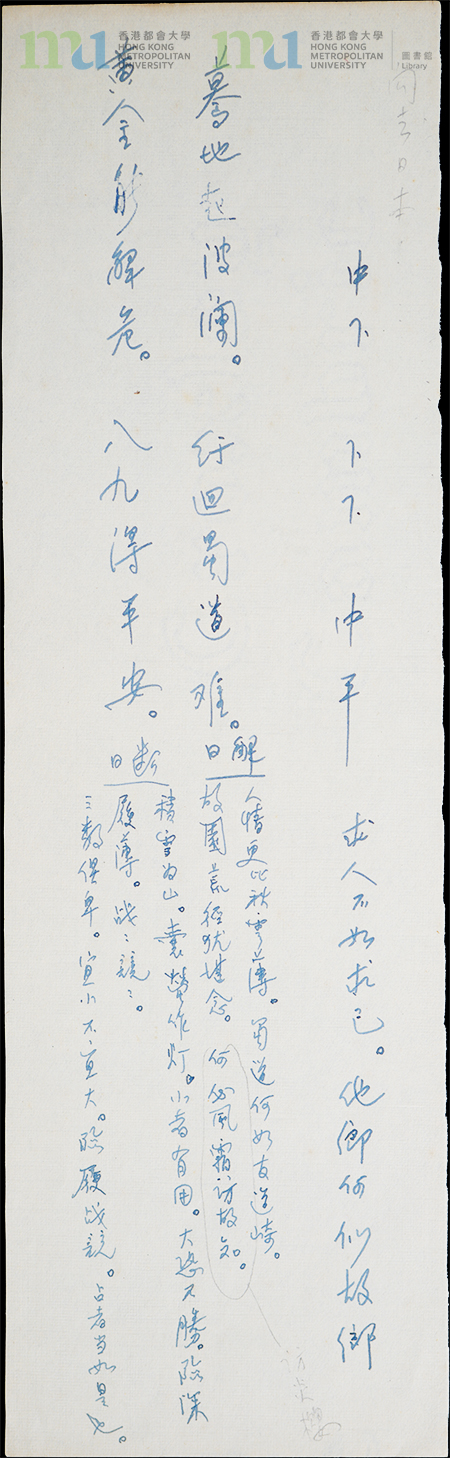 香港都會大學
HONG KONG
METROPOLITAN
UNIVERSITY
香港都會大學
HONG KONG
METROPOLITAN
UNIVERSITY
圖書館
Library
問去日本
中下 下下 中平 求人不如求己。他鄉何似故鄉
驀地起波瀾。 紆迴蜀道难。
黃金能解危。 八九得平安。
解曰
人情更比秋雲薄。蜀道何如友道崎。
故園荒徑犹堪念。何必風霜访故知。
访炎樓
断曰
積雪為山。囊螢作灯。小者有用。大恐不勝。臨深
履薄。战〻競〻。
三数俱卑。宜小不宜大。臨履战競。占者当如是也。